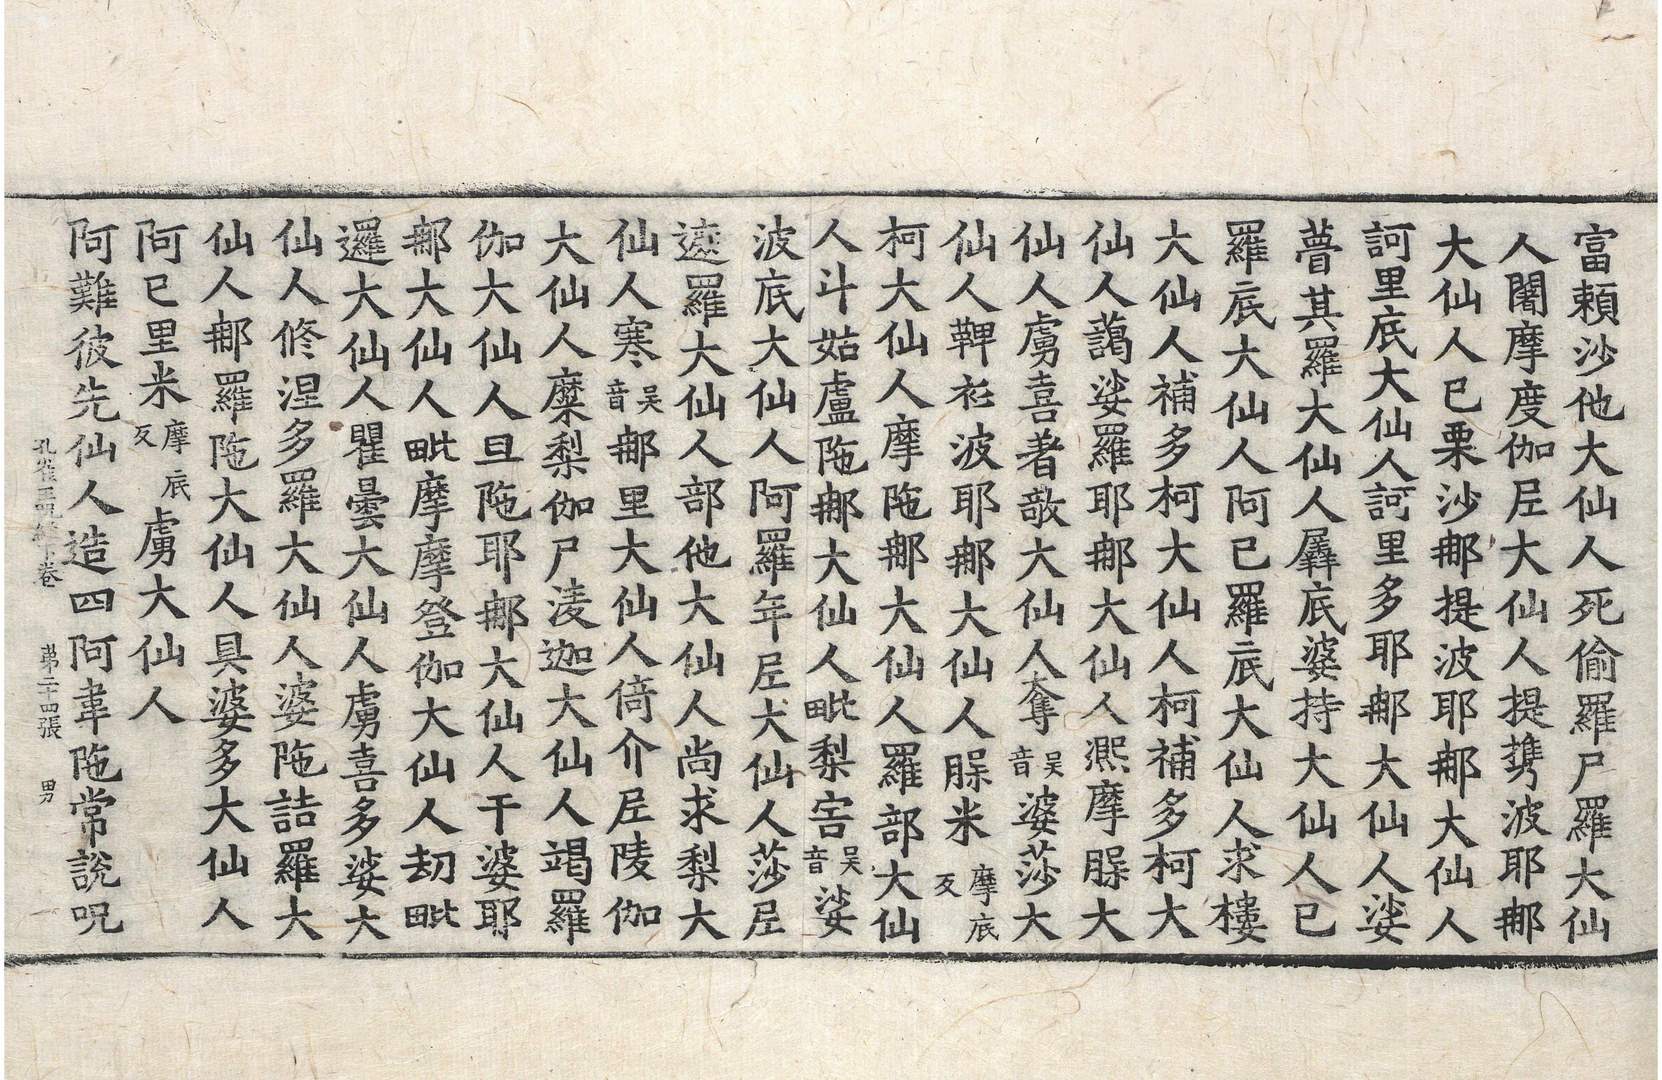 富賴沙他大仙人死偷羅尸羅大仙
人闍摩度伽𡰱大仙人提携波耶䣛
大仙人已栗沙䣛提波耶䣛大仙人
訶里底大仙人訶里多耶䣛大仙人娑
瞢其羅大仙人羼底婆持大仙人已
羅底大仙人阿已羅底大仙人求樓
大仙人補多柯大仙人柯補多柯大
仙人藹娑羅耶䣛大仙人熙摩腜大
仙人虜喜者敬大仙人奪吳音婆莎大
仙人鞞衫波耶䣛大仙人腜米摩底反
柯大仙人摩陁䣛大仙人羅部大仙
人斗姑盧陁䣛大仙人毗梨害吳音娑
波底大仙人阿羅年𡰱大仙人莎𡰱
遮羅大仙人部他大仙人尚求梨大
仙人寒吳音䣛里大仙人倚介𡰱陵伽
大仙人縻梨伽尸凌迦大仙人竭羅
伽大仙人旦陁耶䣛大仙人干婆耶
䣛大仙人毗摩摩登伽大仙人刧毗
邏大仙人瞿曇大仙人虜喜多娑大
仙人修涅多羅大仙人婆陁詰羅大
仙人䣛羅陁大仙人具婆多大仙人
阿已里米摩底反虜大仙人
阿難彼先仙人造四阿韋陁常說呪
孔雀王呪經下卷 第二十四張 男